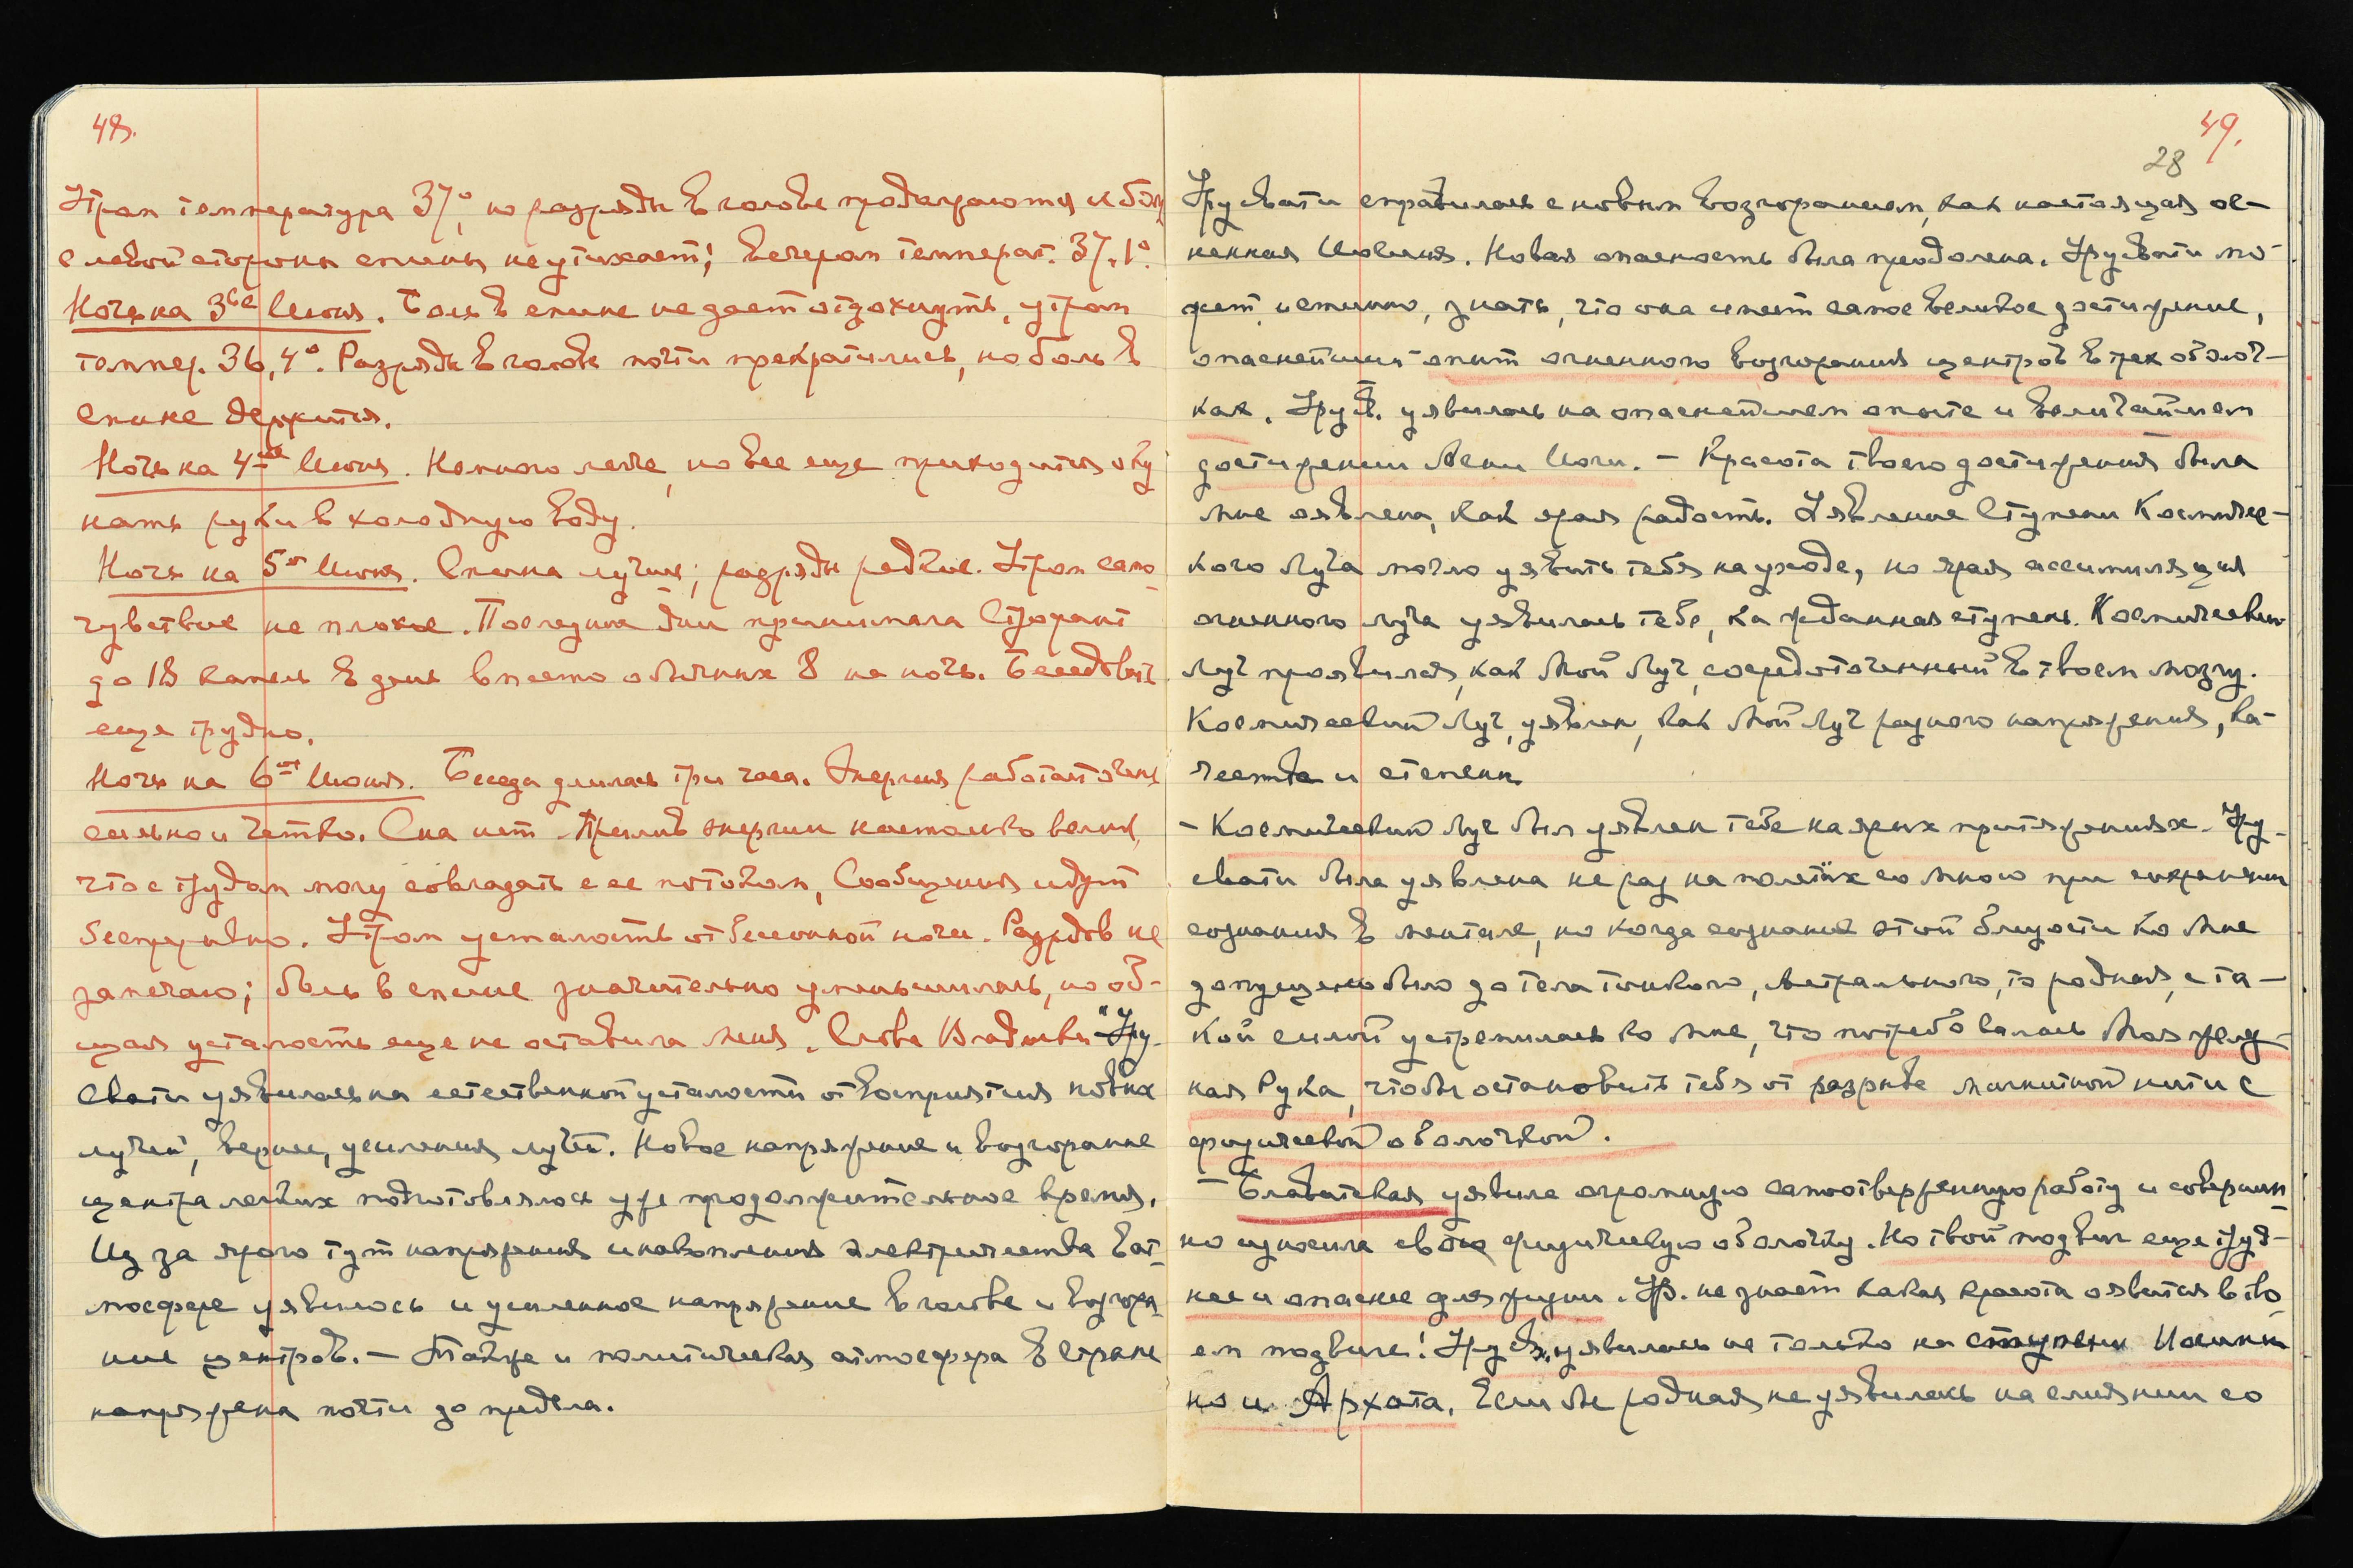 48.
Утром температура 37°, но разряды в голове продолжаются и боль
с левой стороны спины не утихает; вечером температ. 37,1°.
Ночь на 3ье Июня. Боль в спине не дает отдохнуть, утром
темпер. 36,4°. Разряды в голове почти прекратились, но боль в
спине держится.
Ночь на 4ое Июня. Немного легче, но все еще приходится оку
нать руки в холодную воду.
Ночь на 5ое Июня. Спина лучше; разряды редкие. Утром само-
чувствие не плохое. Последние дни принимала Строфант
до 18 капель в день вместо обычных 8 на ночь. Беседовать
еще трудно.
Ночь на 6ое Июня. Беседа длилась три часа. Энергия работает очень
сильно и четко. Сна нет. Прилив энергии настолько велик,
что с трудом могу совладать с ее потоком, Сообщения идут
безпрерывно. Утром усталость от бессонной ночи. Разрядов не
замечаю; боль в спине значительно уменьшилась, но об-
щая усталость еще не оставила меня. Слова Владыки - "Уру-
свати уявилась на естественной усталости от восприятия новых
лучей, вернее, усиления лучей. Новое напряжение и возгорание
центра легких подготовлялось уже продолжительное время.
Из за ярого тут напряжения и накопления электричества в ат-
мосфере уявилось и усиленное напряжение в голове и возгора
ние центров. — Также и политическая атмосфера в стране
напряжена почти до предела.
49.
28
Урусвати справилась с новым возгоранием, как настоящая ог-
ненная Йогиня. Новая опасность была преодолена. Урусвати мо-
жет, истинно, знать, что она имеет самое великое достижение,
опаснейший опыт огненного возгорания центров в трех оболоч-
ках. Урусв. уявилась на опаснейшем опыте и величайшем
достижении Агни Йоги. — Красота твоего достижения была
мне оявлена, как ярая радость. Уявление Ступени Космичес-
кого Луча могло уявить тебя на уходе, но ярая ассимиляция
огненного луча уявилась тебе, как жданная ступень. Космический
Луч проявился, как Мой Луч, сосредоточенный в твоем мозгу.
Космический Луч, уявлен, как Мой Луч разного напряжения, ка-
чества и степени
- Космический Луч был уявлен тебе на ярых притяжениях. Уру-
свати была уявлена не раз на полетах со Мною при сохранении
сознания в ментале, но когда сознание этой близости ко Мне
допущено было до тела тонкого, Астрального, то родная, с та-
кой силой устремилась ко Мне, что потребовалась Моя желез-
ная Рука, чтобы остановить тебя от разрыва магнитной нити с
физической оболочкой.
— Блаватская уявила огромную самоотверженную работу и совершен-
но износила свою физическую оболочку. Но твой подвиг еще труд-
нее и опаснее для жизни. Ур. не знает какая красота оявится в тво
ем подвиге! Урусв. уявилась не только на ступени Йогини
но и Архата. Если бы родная не уявилась на слиянии со